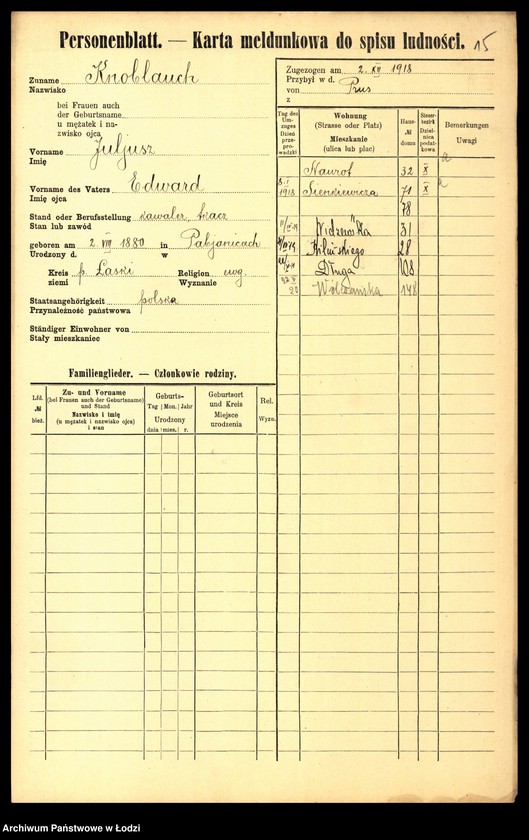 Personenblatt. — Karta meldunkowa do spisu ludności. 15
Zuname Knoblauch
Nazwisko
bei Frauen auch
der Geburtsname
u mężatek i na-
zwisko ojca
Vorname Juljusz
Imię
Vorname des Vaters Edward
Imię ojca
Stand oder Berufsstellung kawaler, tkacz
Stan lub zawód
geboren am 2. VIII 1880 in Pabjanicach
Urodzony d. w
Kreis p. Łaski Religion ewg.
ziemi Wyznanie
Staatsangehörigkeit polska
Przynależność państwowa
Ständiger Einwohner von
Stały mieszkaniec
Zugezogen am 2. XII 1918
Przybył w d.
von Prus
z
Tag des Um-
zuges
Dzień
prze-
prowadzki
Wohnung
(Strasse oder Platz)
Mieszkanie
(ulica lub plac)
Haus-
№
domu
Steuer-
bezirk
Dziel-
nica
podat-
kowa
Bemerkungen
Uwagi
Nawrot 32 X a
1918 Sienkiewicza 71 X a
78
Widzewska 31
Kilińskiego 28
Długa 108
20 Wólczańska 148
Familienglieder. — Członkowie rodziny.
Lfd.
№
bież.
Zu- und Vorname
(bei Frauen auch der Geburtsname)
und Stand
Nazwisko i imię
(u mężatek i nazwisko ojca)
i stan
Geburts-
Tag Mon. Jahr
Urodzony
dnia mies. r.
Geburtsort
und Kreis
Miejsce
urodzenia
Rel.
Wyzn.
Archiwum Państwowe w Łodzi